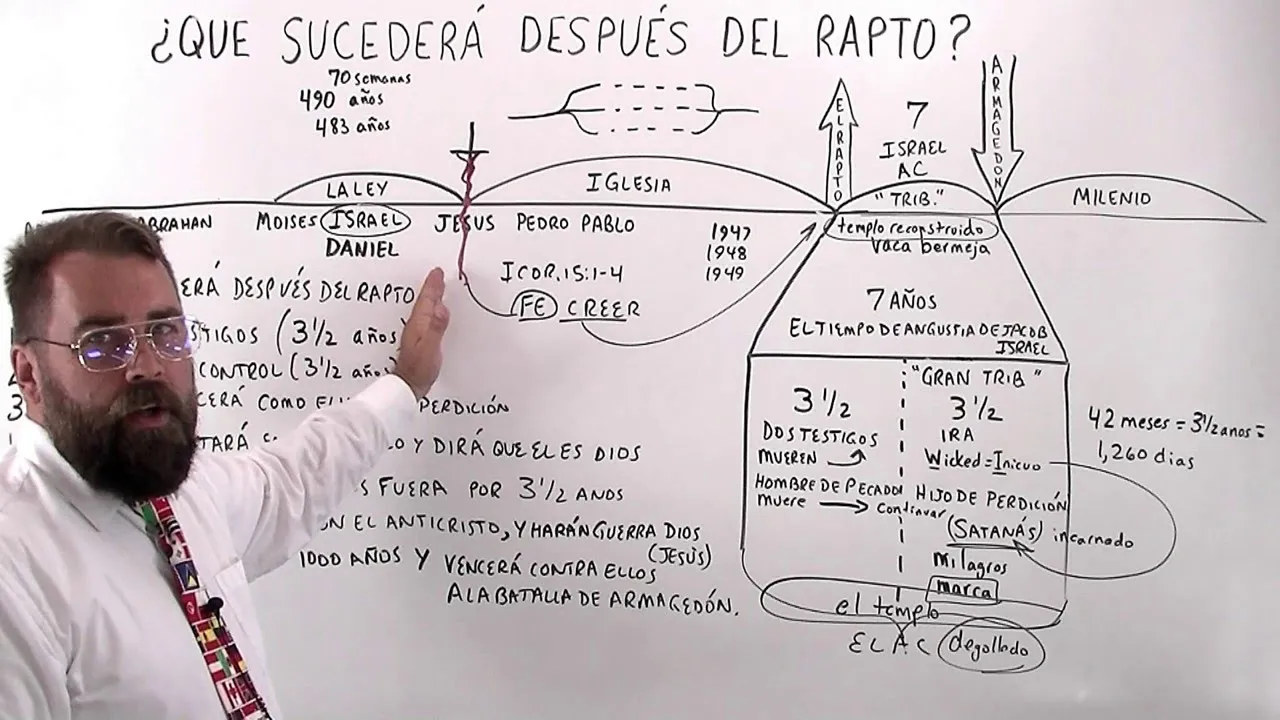 ¿QUE SUCEDERÁ DESPUÉS DEL RAPTO?
70 semanas
490 años
483 años
EL RAPTO
7
ISRAEL
AC
"TRIB."
ARMAGEDON
LA LEY
IGLESIA
MILENIO
MOISES ISRAEL JESUS PEDRO PABLO
DANIEL
1947
1948
1949
templo reconstruido
vaca bermeja
I COR. 15:1-4
FE CREER
7 AÑOS
EL TIEMPO DE ANGUSTIA DE JACOB
ISRAEL
DESPUÉS DEL RAPTO
(3 1/2 años)
CONTROL (3 1/2
COMO
PERDICIÓN
Y DIRÁ QUE EL ES DIOS
FUERA POR 3 1/2 ANOS
EL ANTICRISTO, Y HARÁN GUERRA DIOS
(JESÚS)
1000 AÑOS Y VENCERÁ CONTRA ELLOS
A LA BATALLA DE ARMAGEDÓN.
3 1/2
DOS TESTIGOS
MUEREN
HOMBRE DE PECADO
muere
continuar
"GRAN TRIB"
3 1/2
IRA
Wicked = Inicuo
HIJO DE PERDICIÓN
(SATANÁS) incarnado
milagros
marca
el templo
EL AC degollado
42 meses = 3 1/2 anos =
1,260 dias